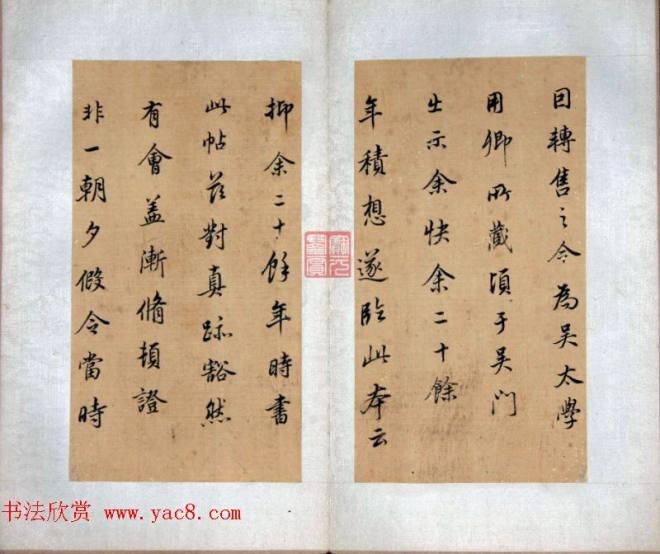 因轉售之今為吳太學
用卿所藏頃于吳門
出示余快余二十餘
年積想遂臨此本云
抑余二十餘年時書
此帖茲對真跡豁然
有會蓋漸脩頓證
非一朝夕假令當時
書法欣赏 www.yac8.com